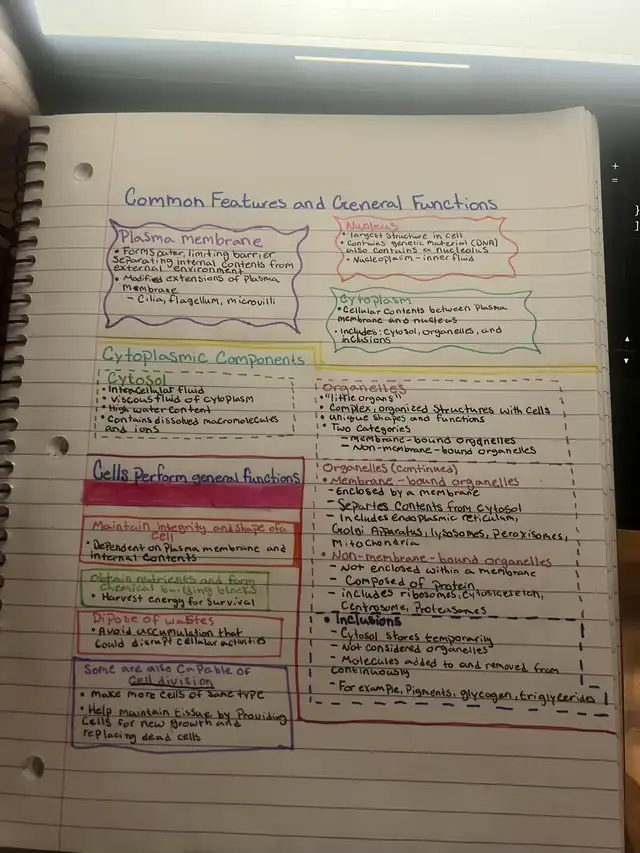 Common Features and General Functions
Plasma membrane
• Forms outer, limiting barrier
separating internal contents from
external environment
• Modified extensions of plasma
membrane
– Cilia, flagellum, microvilli
Nucleus
• largest structure in cell
• contains genetic material (DNA)
also contains a nucleolus
• Nucleoplasm - inner fluid
Cytoplasm
• Cellular contents between plasma
membrane and nucleus
• Includes: Cytosol, organelles, and
inclusions
Cytoplasmic Components
Cytosol
• Intracellular fluid
• viscous fluid of cytoplasm
• High water content
• Contains dissolved macromolecules
and ions
Organelles
• "little organs"
• Complex, organized structures with cells
• unique shapes and functions
• Two categories
– membrane-bound organelles
– Non-membrane-bound organelles
Organelles (continued)
• Membrane-bound organelles
– Enclosed by a membrane
– Separtes contents from cytosol
– Includes endoplasmic reticulum,
Golgi Apparatus, lysosomes, peroxisomes,
Mitochondria
• Non-membrane-bound organelles
– Not enclosed within a membrane
– Composed of protein
– includes ribosomes, cytoskeleton,
Centrosome, Proteasomes
• Inclusions
– Cytosol stores temporarily
– Not considered organelles
– Molecules added to and removed from
continuously
– For example, Pigments, glycogen, triglycerides
Cells perform general functions
Maintain integrity and shape of a
cell
• Dependent on plasma membrane and
internal contents
Obtain nutrients and form
chemical building blocks
• Harvest energy for survival
Dipose of wastes
• Avoid accumulation that
could disrupt cellular activities
Some are also capable of
cell division
• make more cells of same type
• Help maintain tissue by providing
cells for new growth and
replacing dead cells
+
=
}
]